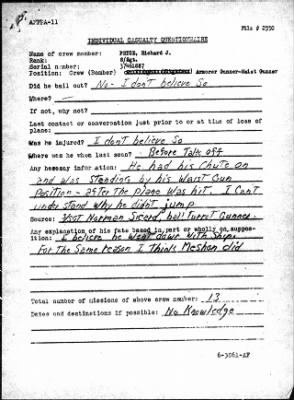 AFPPA-11
File # 2550
INDIVIDUAL CASUALTY QUESTIONNAIRE
Name of crew member: Richard J.
Rank: S/Sgt.
Serial number:
Position: Crew (Bomber) Armorer Gunner-Waist Gunner
Did he bail out? No - I don't believe So
Where? —
If not, why not?
Last contact or conversation just prior to or at time of loss of
plane:
Was he injured? I don't believe So
Where was he when last seen? Before Talk off
Any hearsay information: He had his Chute on
and was Standing by his Waist Gun
Position - after the plane was hit. I Can't
understand why he didn't jump.
Source: Norman ball Turret Gunner.
Any explanation of his fate based in part or wholly on suppo-
sition: I believe he went down with Ship.
For the Same reason I Think Meshon did
Total number of missions of above crew member: 13
Dates and destinations if possible: No Knowledge
6-3061-AF